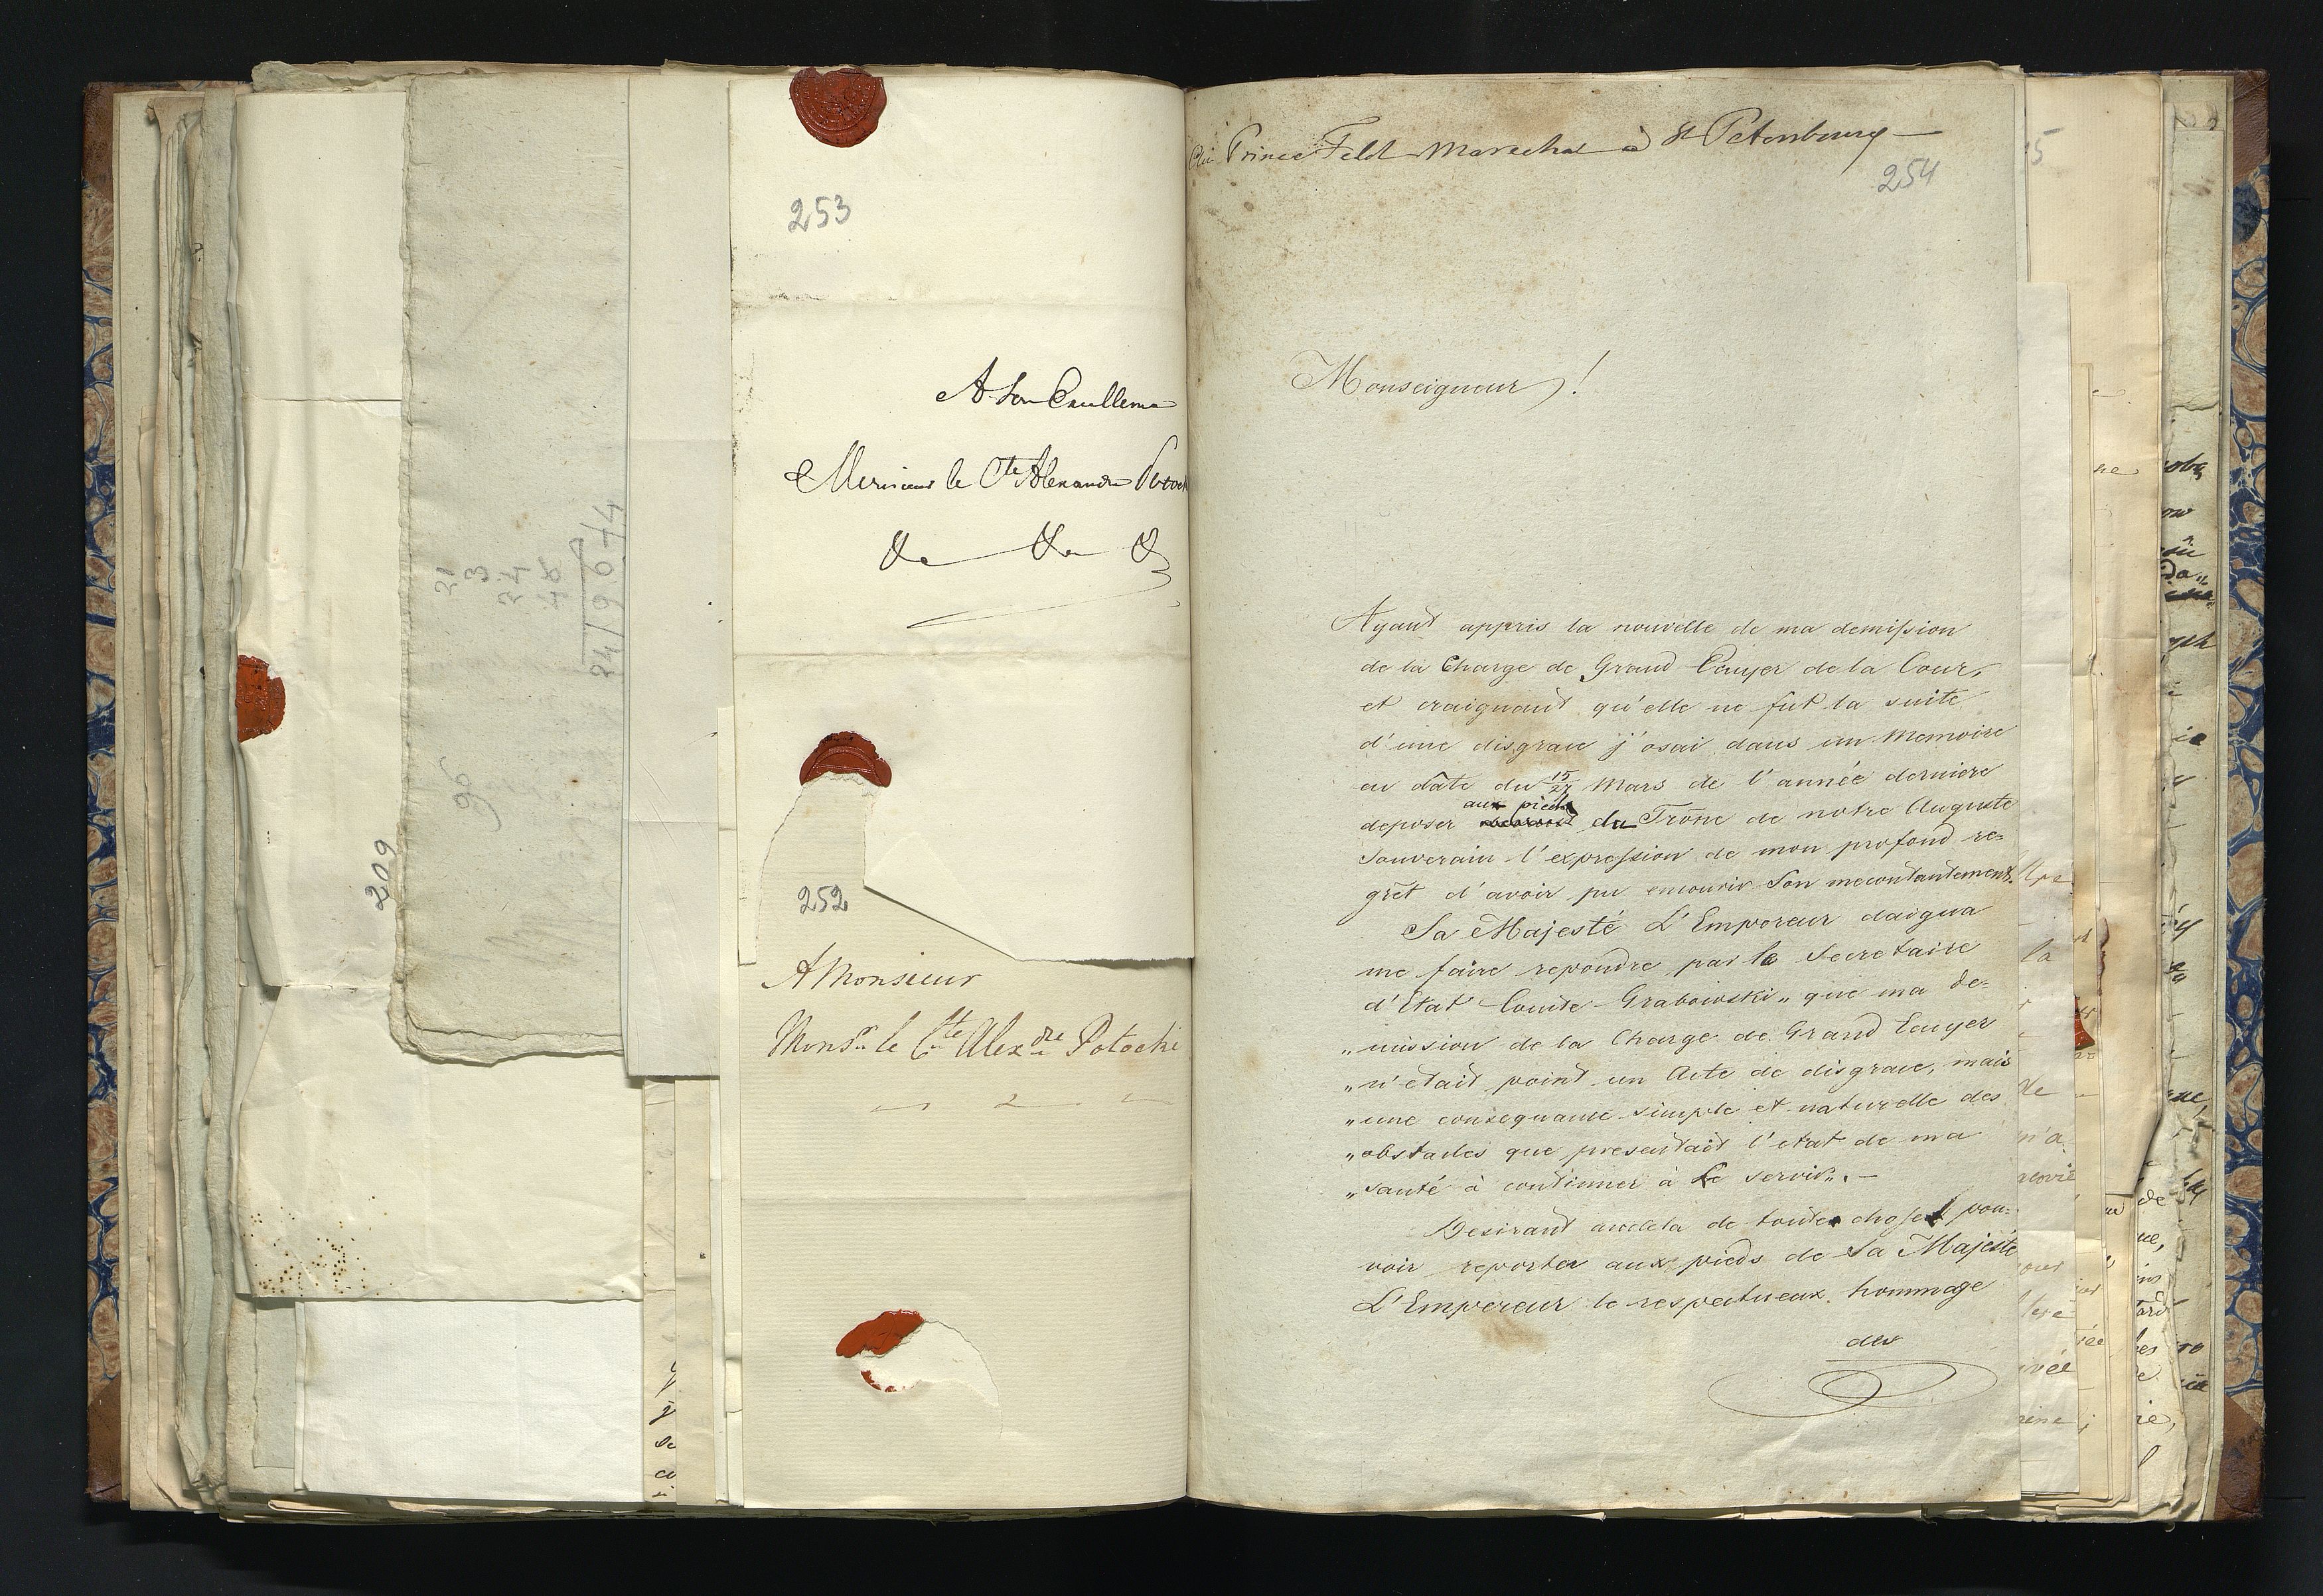 253
A Son Excellence
Monsieur le Cte Alexandre Potock
&c &c &c
252
A Monsieur
Monsr le Cte Alexdre Potocki
209
96
Au Prince Feld Marechal à St Petersbourg —
254
Monseigneur !
Ayant appris la nouvelle de ma demission
de la Charge de Grand Ecuyer de la Cour,
et craignant qu'elle ne fut la suite
d'une disgrace j'osai dans un Memoire
en date du 15/27 Mars de l'année derniere
deposer aux pieds du Trône de notre Auguste
Souverain l'expression de mon profond re=
gret d'avoir pu encourir Son mecontantement.
Sa Majesté L'Empereur daigna
me faire repondre par le Secretaire
d'Etat Comte Grabowski „ que ma de=
„ mission de la Charge de Grand Ecuyer
„ n'etait point un Acte de disgrace, mais
„ une consequance simple et naturelle des
„ obstacles que presentait l'etat de ma
„ santé à continuer à Le servir „. —
Desirant audela de toute chose pou=
voir reporter aux pieds de Sa Majesté
L'Empereur le respectueux hommage
des